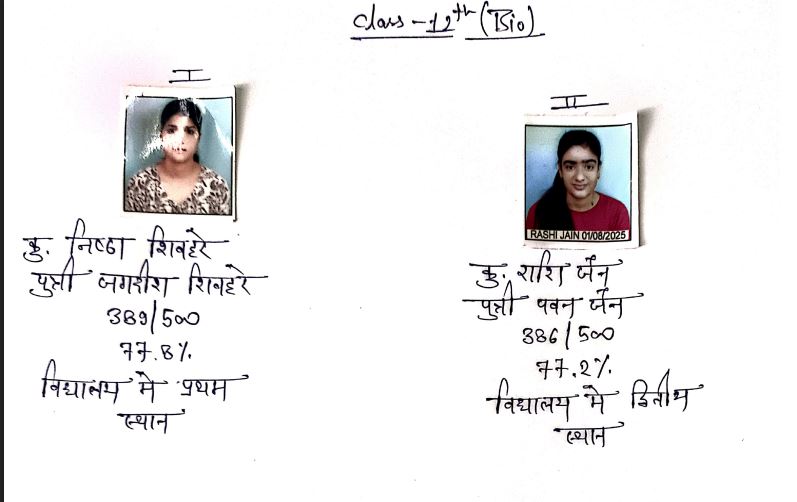 Class - 12th (Bio)
I
कु. निष्ठा शिवहरे
पुत्री जगदीश शिवहरे
389/500
77.8%
विद्यालय मे प्रथम
स्थान
II
RASHI JAIN 01/08/2025
कु. राशि जैन
पुत्री पवन जैन
386/500
77.2%
विद्यालय मे द्वितीय
स्थान